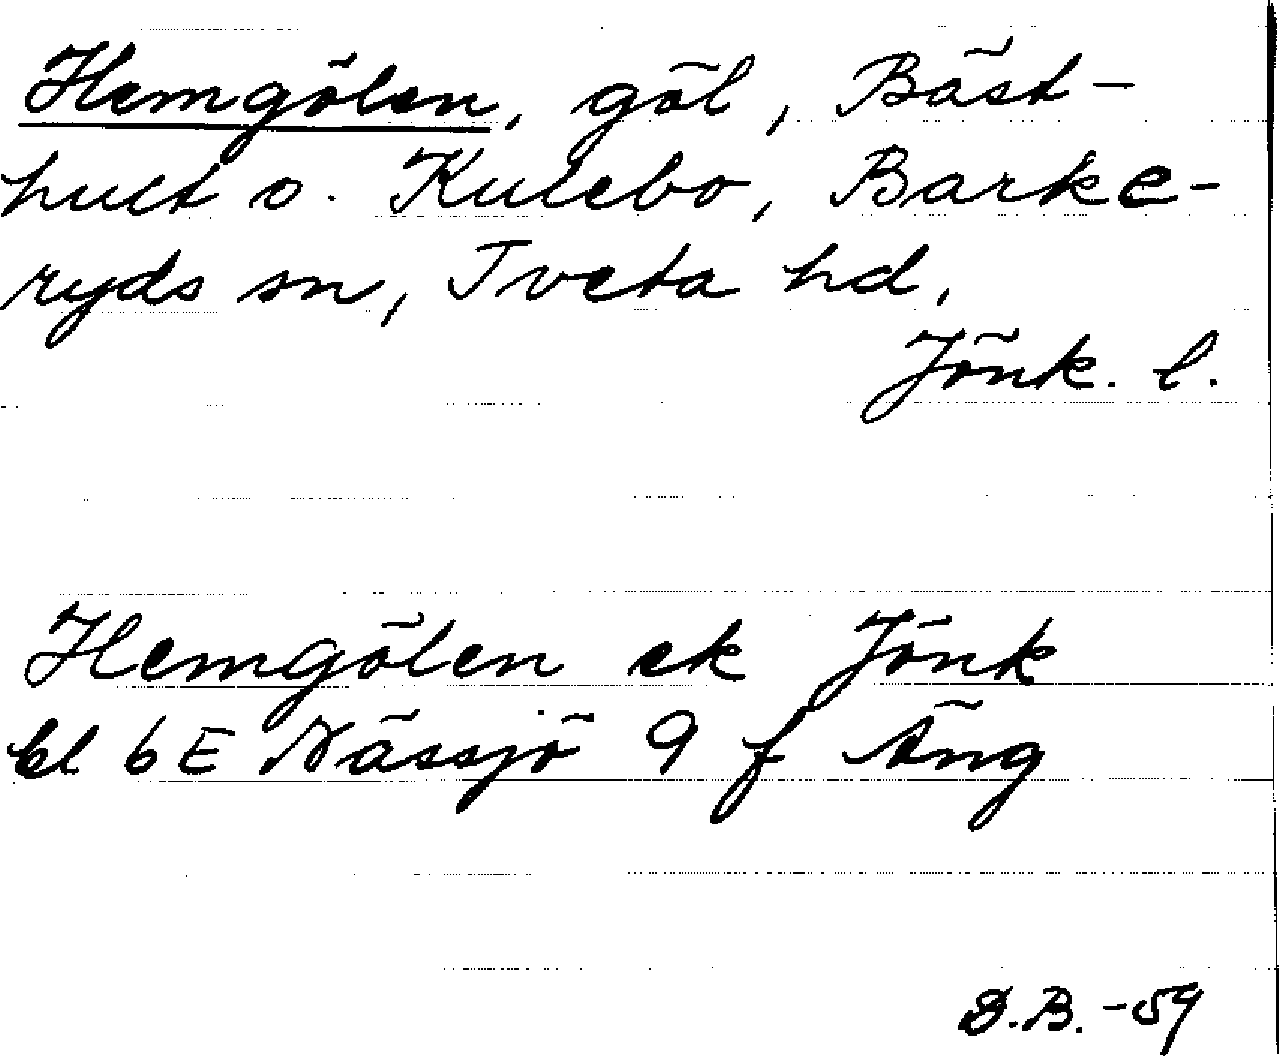 Hemgölen, göl, Bäst-
hult o. Kulebo, Barke-
ryds sn, Tveta hd,
Jönk. l.
Hemgölen ek Jönk
bl 6E Nässjö 9 f Äng
D.B. -59